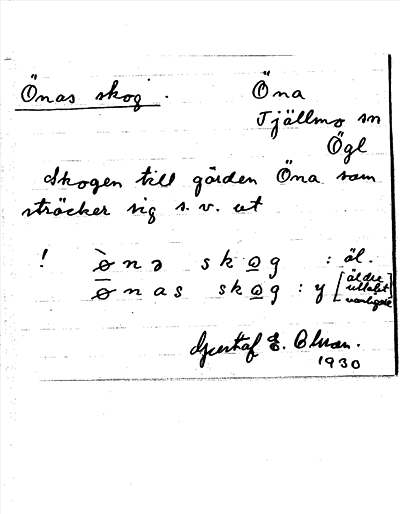 Önas skog.
Öna
Tjällmo sn
Ögl
Skogen till gården Öna som
sträcker sig s.v. ut
! ø̀nə skog : äl.
ø̄nas skog : y [äldre
uttalet
vanligare]
Gustaf E. Olson.
1930